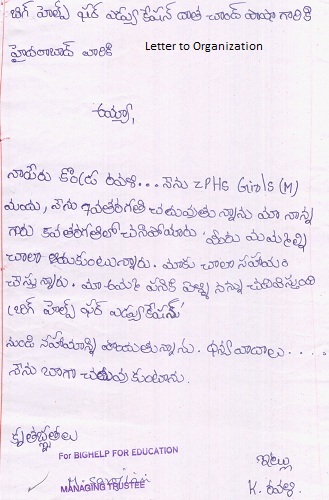 బిగ్ హెల్ప్ ఫర్ ఎడ్యుకేషన్ దాత చాంద్ పాషా గారికి
హైదరాబాద్ వారికి
Letter to Organization
అయ్యా,
నాపేరు కొండ్ర రవళి... నేను ZPHS Girls (M)
మయు, నేను 7వతరగతి చదువుతున్నాను మా నాన్న
గారు కవతరగతిలో చనిపోయారు మీరు మమ్మల్ని
చాలా ఆదుకుంటున్నారు. మాకు చాలా సహాయం
చేస్తున్నారు. మా అమ్మ పనికి వెళ్ళి నన్ను చదివిస్తుంది
బిగ్ హెల్ప్ ఫర్ ఎడ్యుకేషన్
నుండి సహాయాన్ని పొందుతున్నాను. ధన్యవాదాలు....
నేను బాగా చదువుకుంటాను.
కృతజ్ఞతలు
For BIGHELP FOR EDUCATION
MANAGING TRUSTEE
ఇట్లు
K. రవళి.